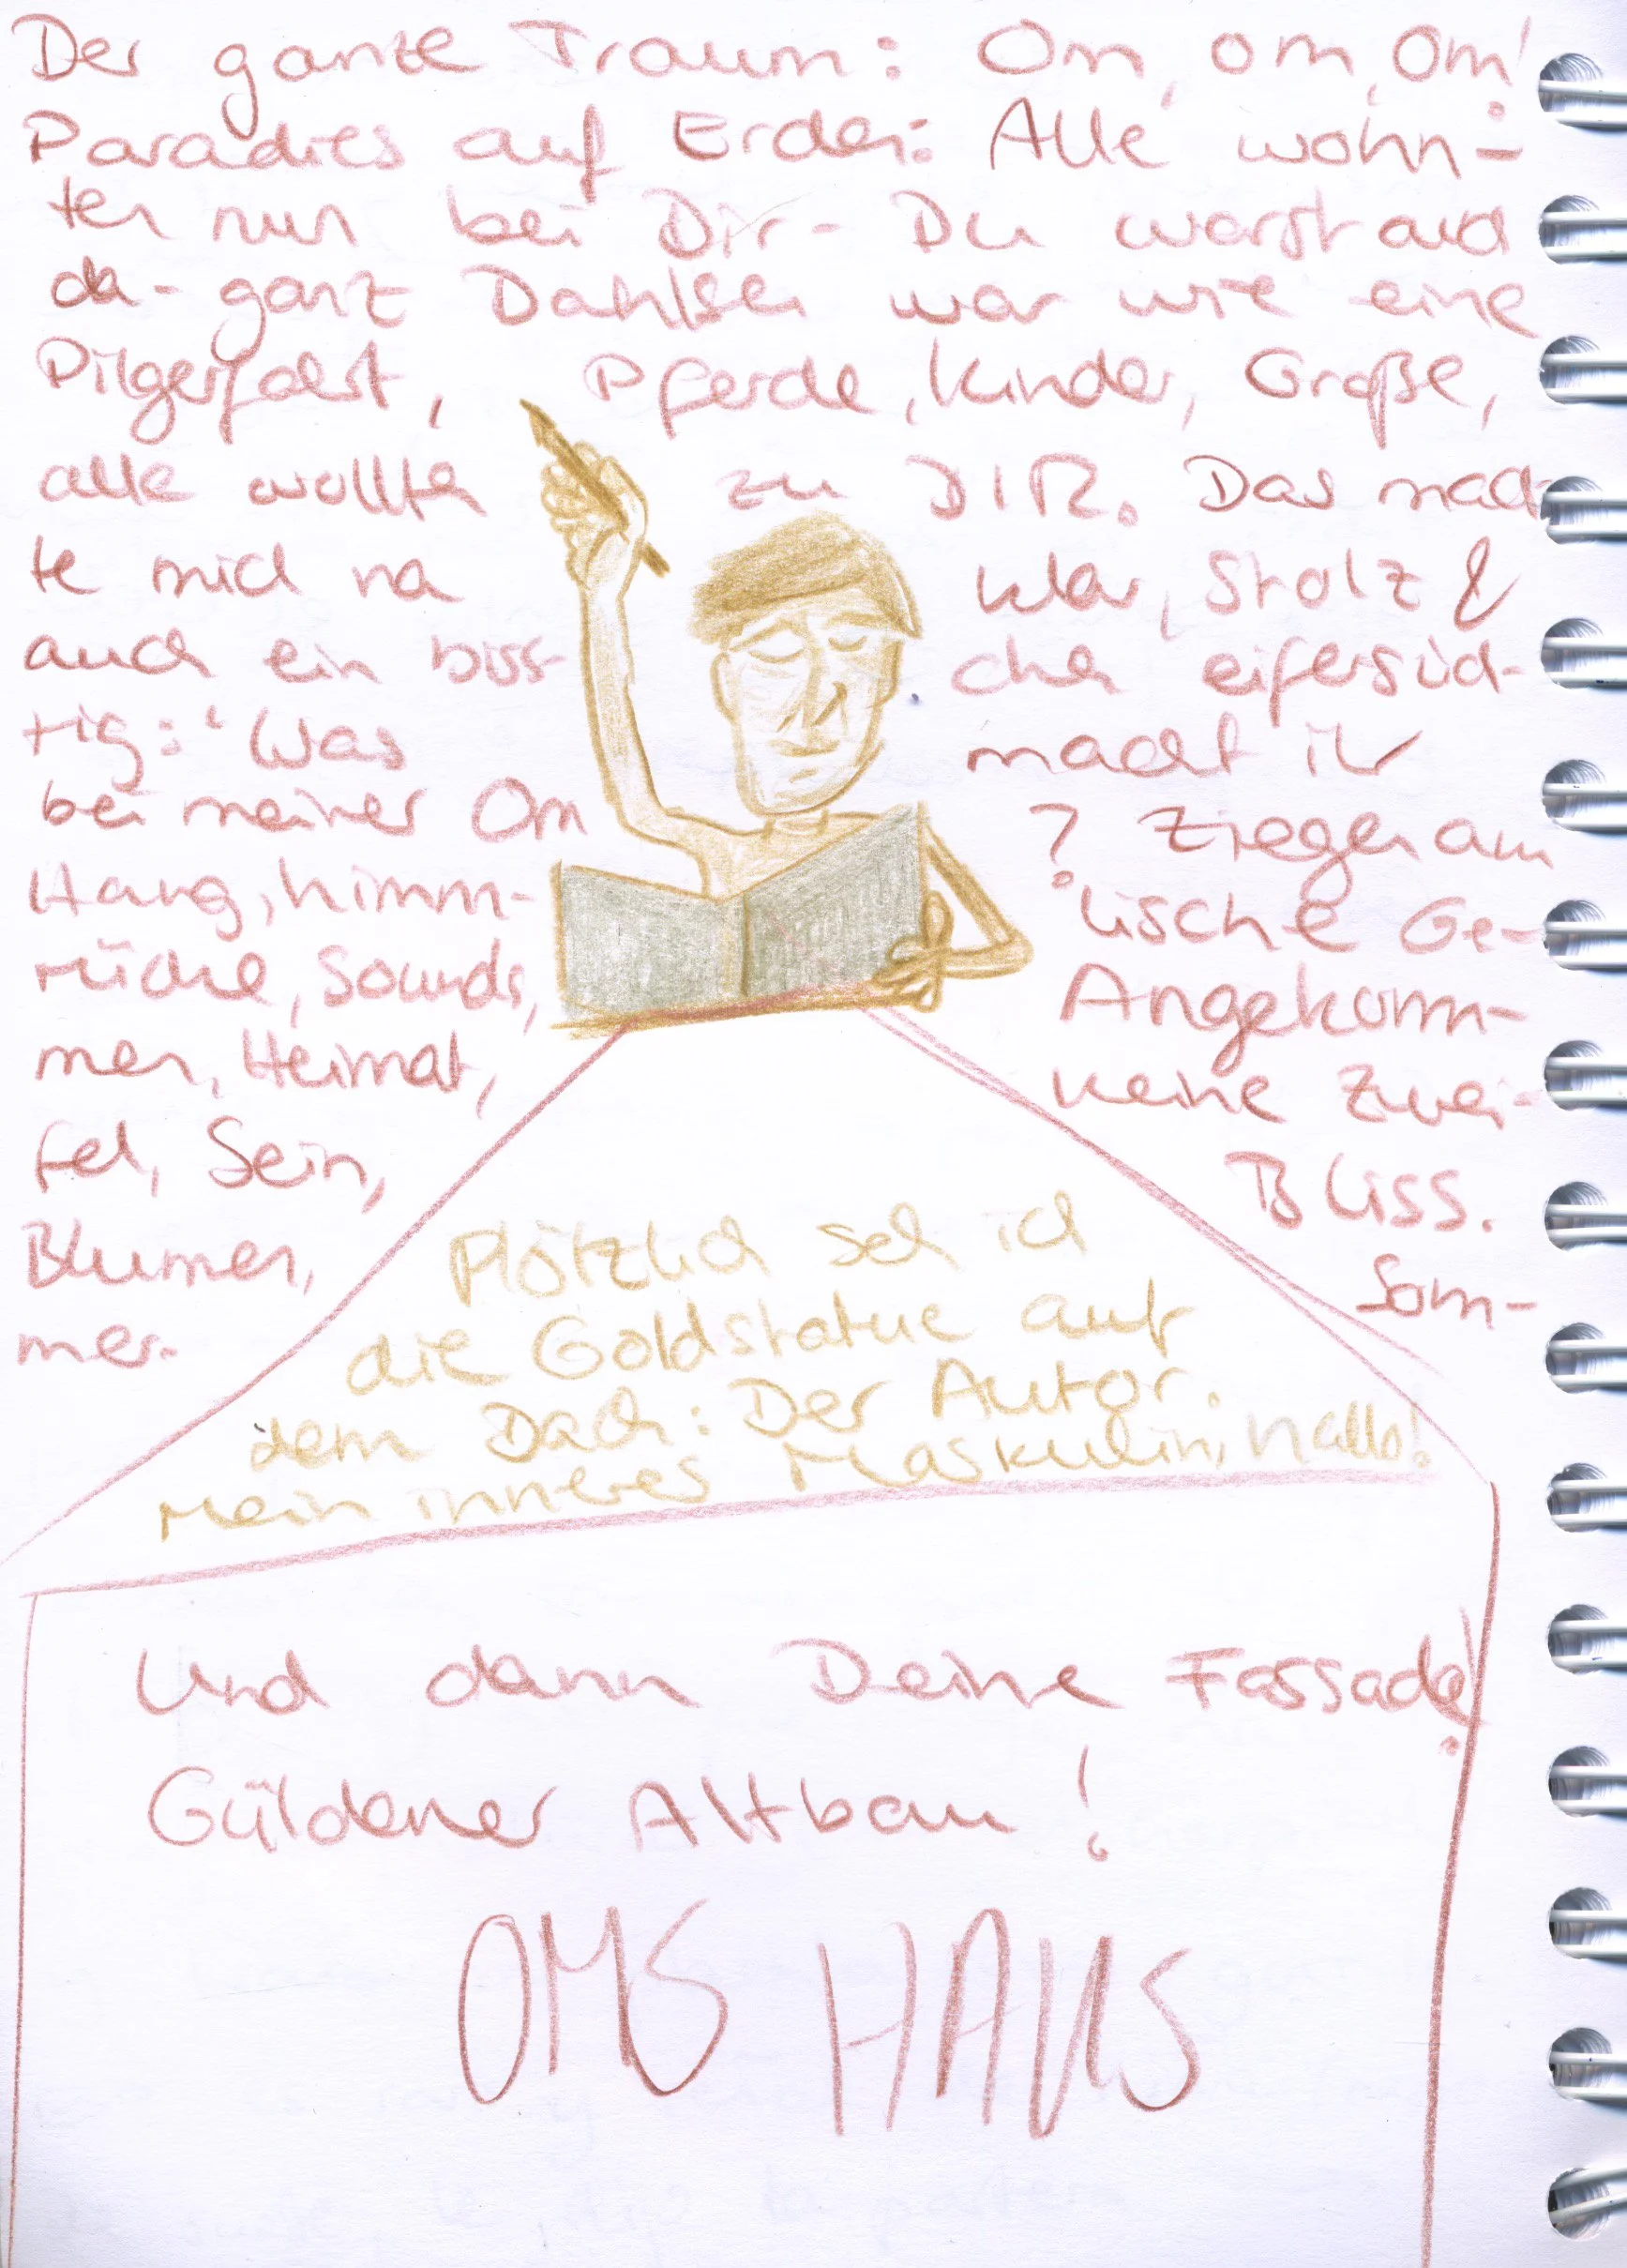 Der ganze Traum: Om, om, Om!
Paradies auf Erden: Alle wohn-
ten nun bei Dir - Du warst auch
da - ganz Dahlsen war wie eine
Pilgerfahrt, Pferde, Kinder, Große,
alle wollten zu DIR. Das mach-
te mich na klar, stolz &
auch ein biss- chen eifersüch-
tig: "Was macht ihr
bei meiner Om? Ziegen am
Hang, himm- lische Ge-
rüche, Sounds, Angekom-
men, Heimat, keine Zwei-
fel, Sein, Bliss.
Blumen, Som-
mer.
Plötzlich seh ich
die Goldstatue auf
dem Dach: Der Autor.
Mein inneres Maskulin, hallo!
Und dann Deine Fassade!
Güldener Altbau!
OMS HAUS